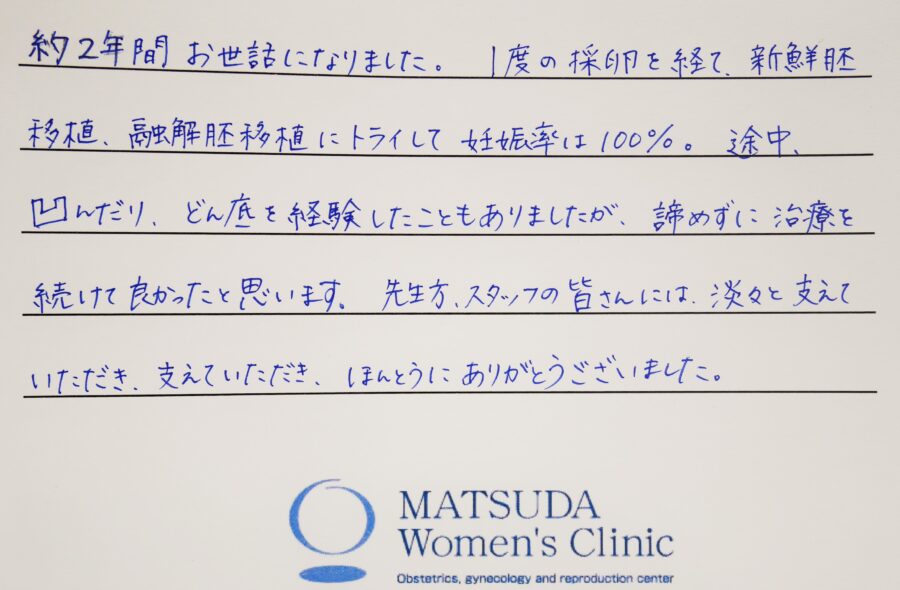 約2年間お世話になりました。 1度の採卵を経て、新鮮胚
移植、融解胚移植にトライして 妊娠率は100%。 途中、
凹んだり、どん底を経験したこともありましたが、諦めずに治療を
続けて良かったと思います。 先生方、スタッフの皆さんには、淡々と支えて
いただき、支えていただき、ほんとうにありがとうございました。
MATSUDA
Women's Clinic
Obstetrics, gynecology and reproduction center